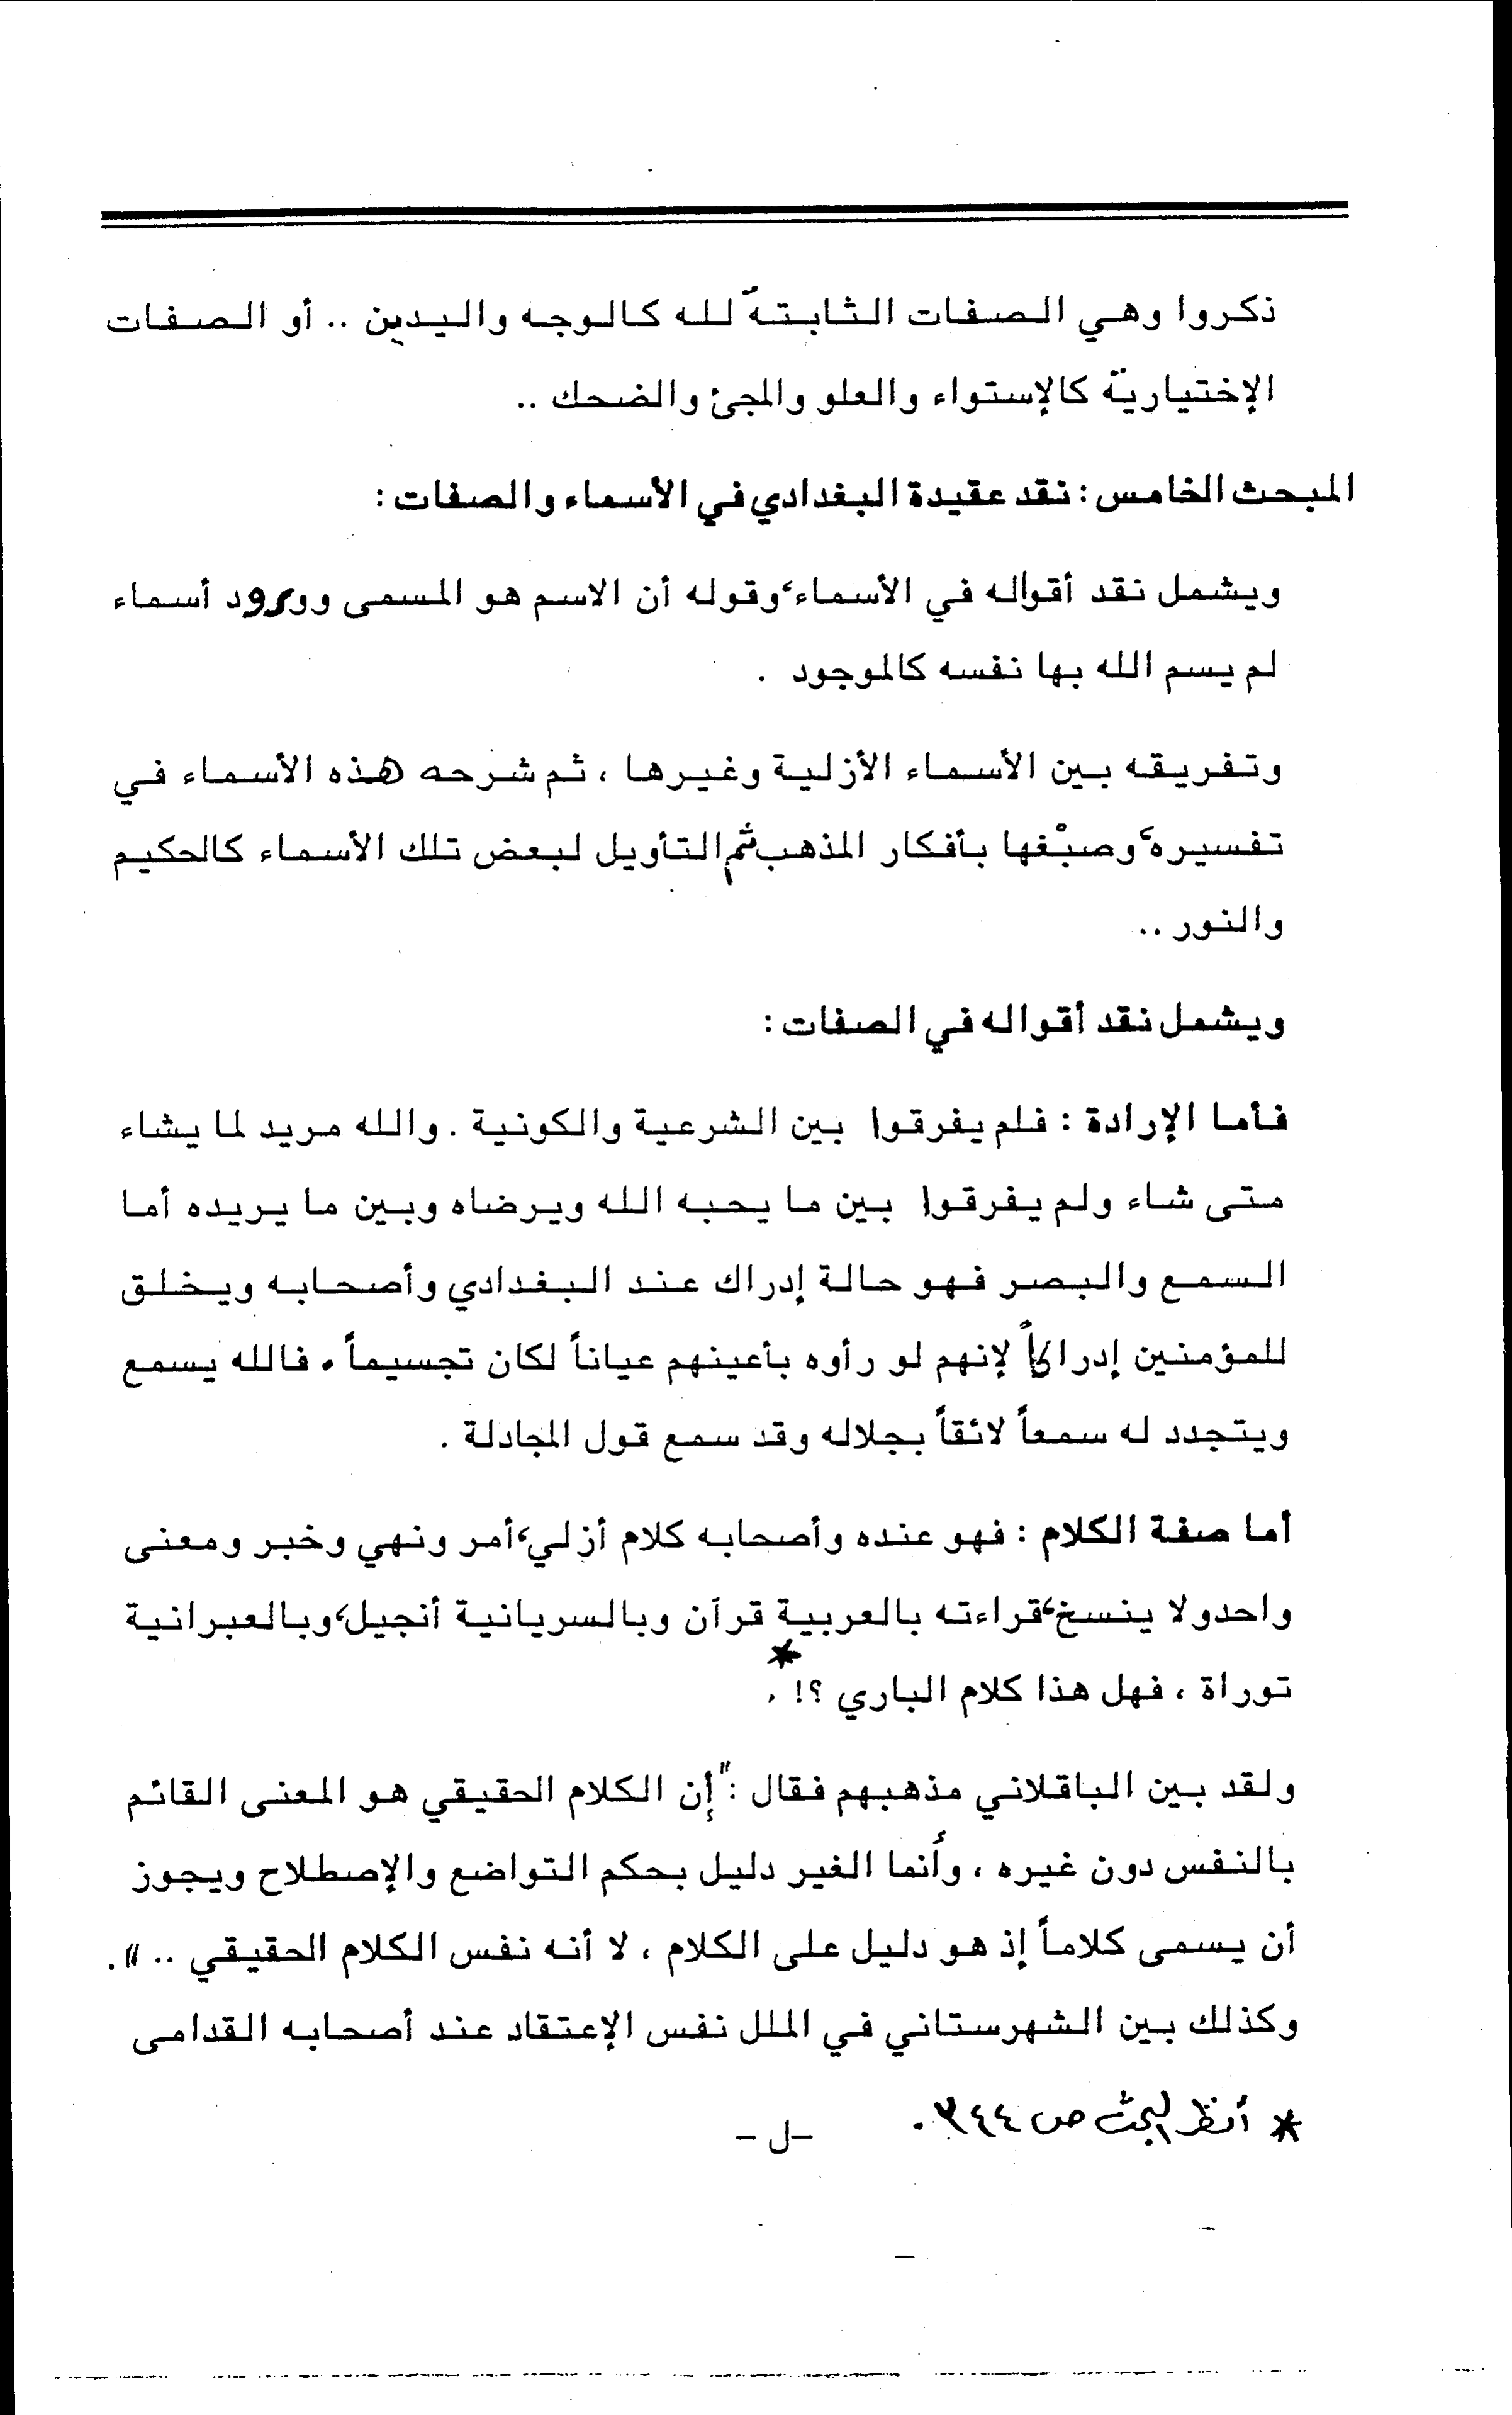 ذكروا وهي الصفات الثابتة لله كالوجه واليدين .. أو الصفات
الإختيارية كالإستواء والعلو والمجئ والضحك ..
المبحث الخامس : نقد عقيدة البغدادي في الأسماء والصفات :
ويشمل نقد أقواله في الأسماء، وقوله أن الاسم هو المسمى وورود أسماء
لم يسم الله بها نفسه كالموجود .
وتفريقه بين الأسماء الأزلية وغيرها ، ثم شرحه هذه الأسماء في
تفسيره، وصبْغها بأفكار المذهب ثم التأويل لبعض تلك الأسماء كالحكيم
والنور ..
ويشمل نقد أقواله في الصفات :
فأما الإرادة : فلم يفرقوا بين الشرعية والكونية . والله مريد لما يشاء
متى شاء ولم يفرقوا بين ما يحبه الله ويرضاه وبين ما يريده أما
السمع والبصر فهو حالة إدراك عند البغدادي وأصحابه ويخلق
للمؤمنين إدراكاً لإنهم لو رأوه بأعينهم عياناً لكان تجسيماً . فالله يسمع
ويتجدد له سمعاً لائقاً بجلاله وقد سمع قول المجادلة .
أما صفة الكلام : فهو عنده وأصحابه كلام أزلي، أمر ونهي وخبر ومعنى
واحدولا ينسخ، قراءته بالعربية قرآن وبالسريانية أنجيل، وبالعبرانية
توراة ، فهل هذا كلام الباري ؟! * .
ولقد بين الباقلاني مذهبهم فقال : "إن الكلام الحقيقي هو المعنى القائم
بالنفس دون غيره ، وأنما الغير دليل بحكم التواضع والإصطلاح ويجوز
أن يسمى كلاماً إذ هو دليل على الكلام ، لا أنه نفس الكلام الحقيقي .. " .
وكذلك بين الشهرستاني في الملل نفس الإعتقاد عند أصحابه القدامى
* أنظر البحث ص ٣٤٤ .
- ل -